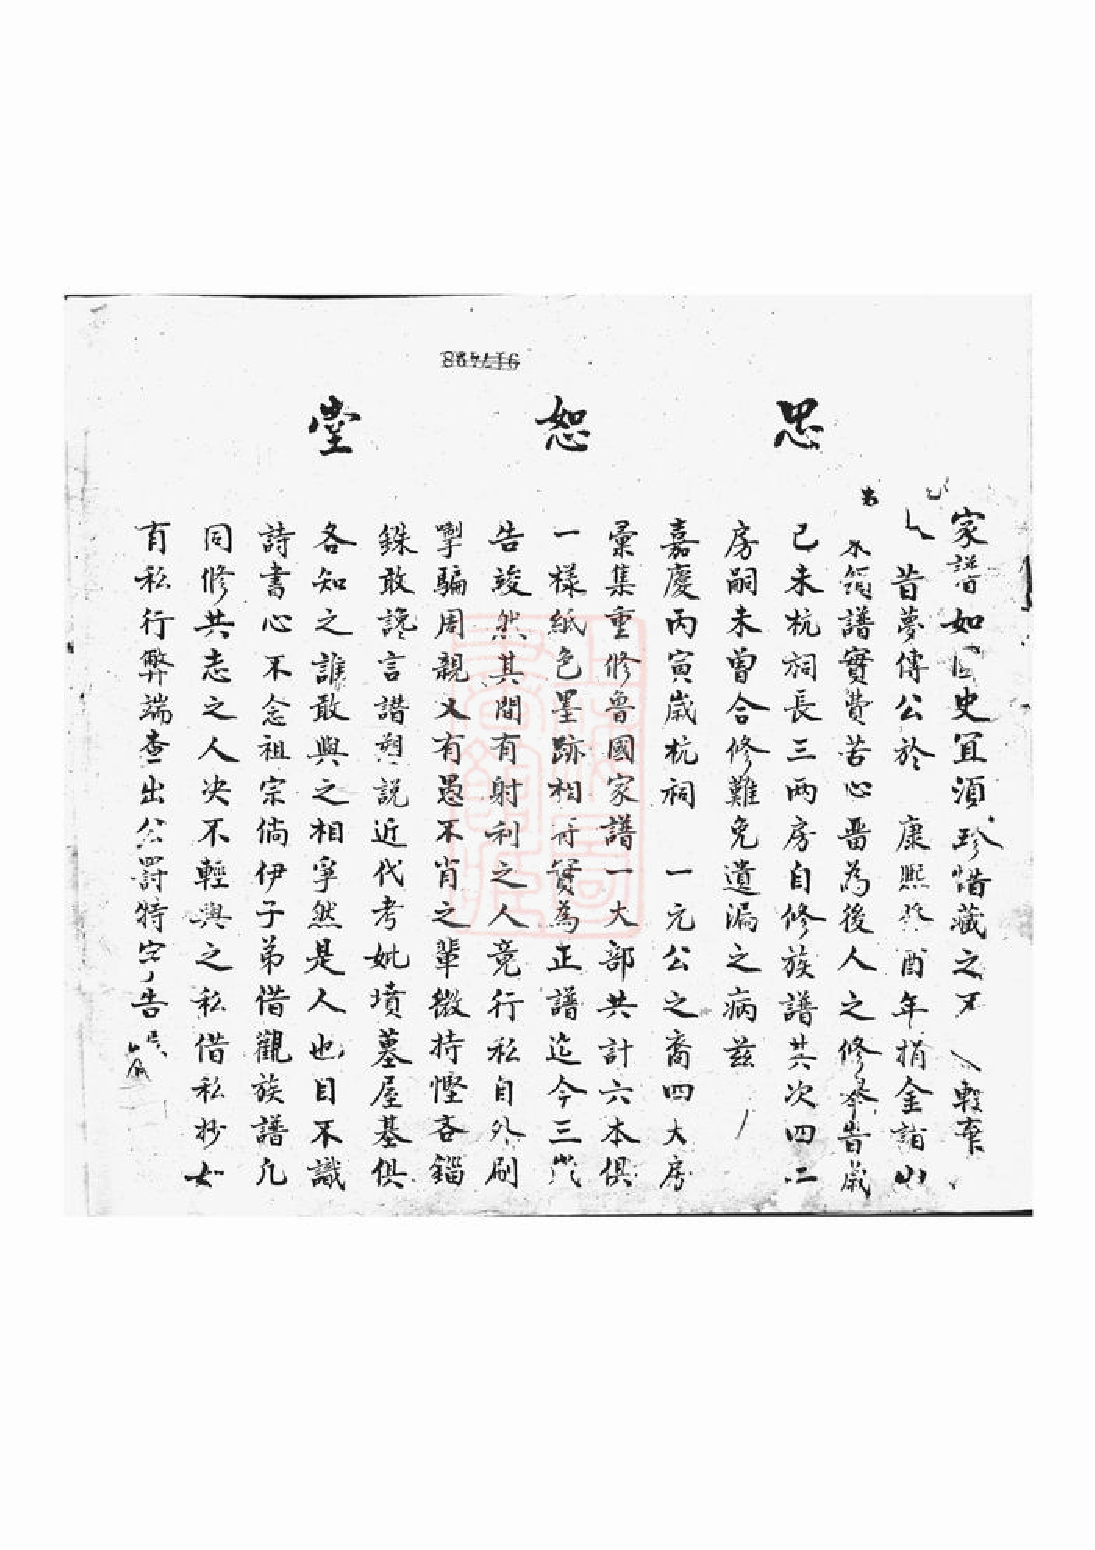 917498
思恕堂
家譜如國史宜須珍惜藏之不輕棄
昔夢傅公於康熙癸酉年捐金詣山
箱譜實費苦心畱為後人之修舉昔歲
己未杭祠長三兩房自修族譜其次四二
房嗣未曾合修難免遺漏之病茲
嘉慶丙寅歲杭祠一元公之裔四大房
彙集重修魯國家譜一大部共計六本俱
一樣紙色墨跡相符贊為正譜迄今三代
告竣然其間有射利之人竟行私自外刷
掣騙周親又有愚不肖之輩微持慳吝錙
銖敢讒言譖塑說近代考妣墳墓屋基俱
各知之誰敢與之相爭然是人也目不識
詩書心不念祖宗倘伊子弟借觀族譜凡
同修共志之人決不輕與之私借私抄如
有私行弊端查出公罰特字告